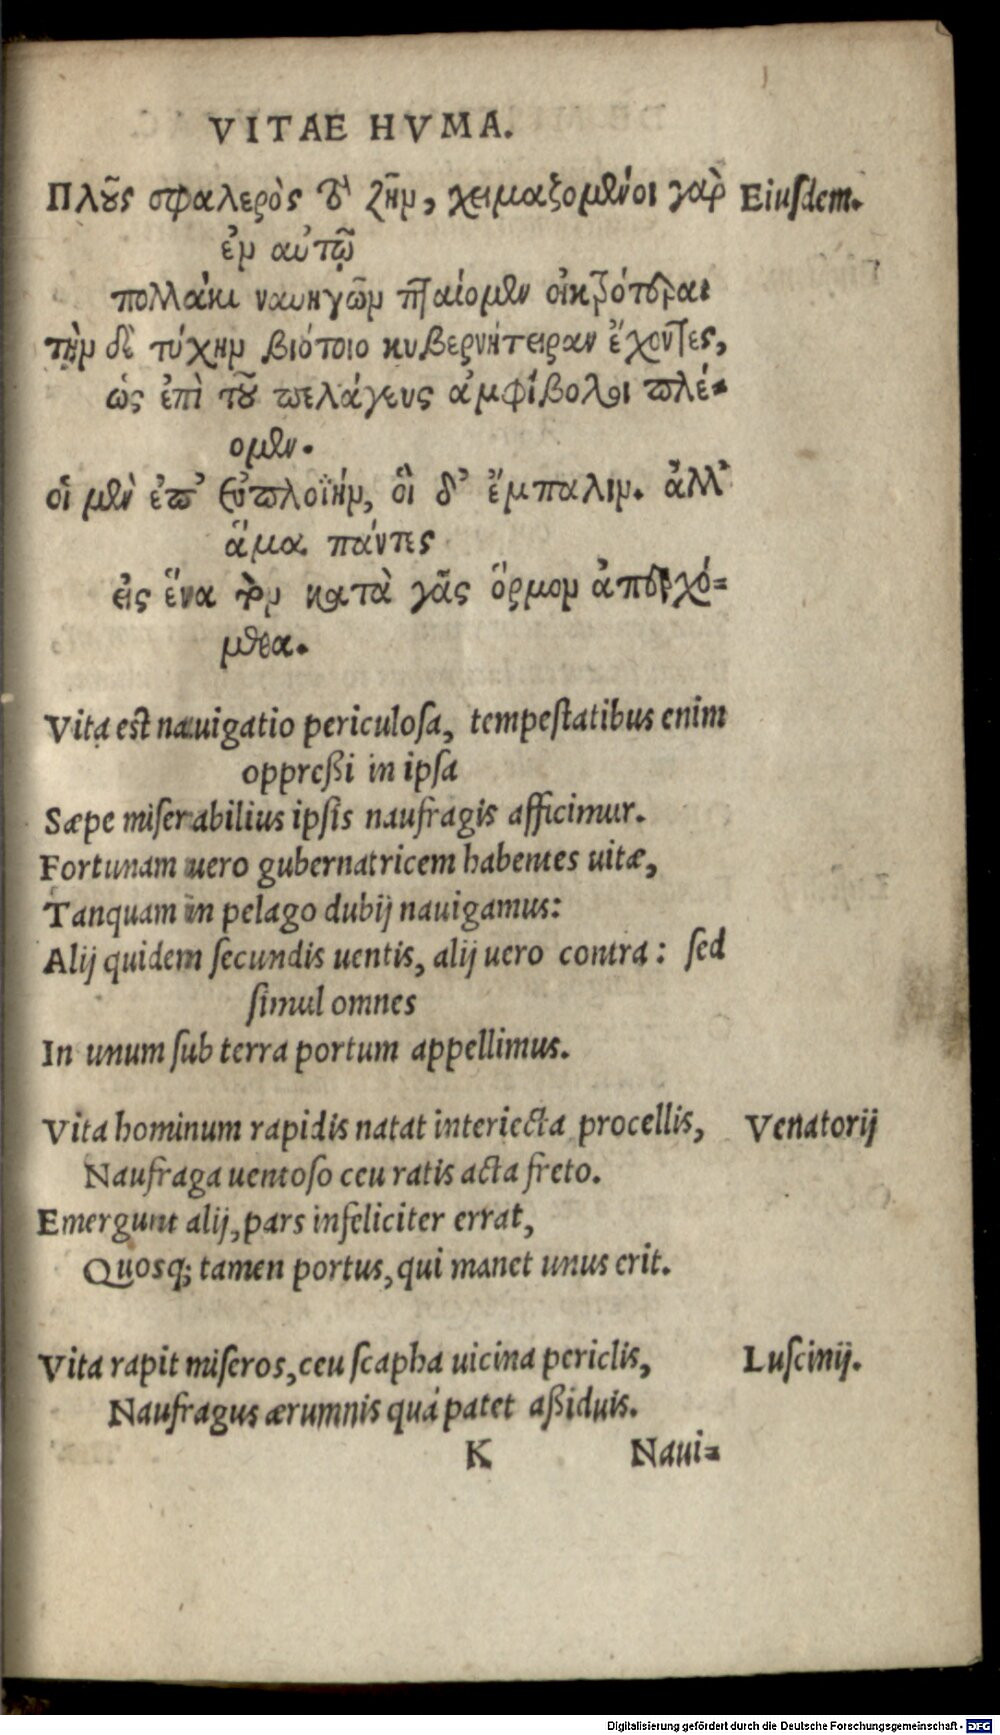 VITAE HVMA.
Πλοῦς σφαλερὸς τὸ ζῇν, χειμαζομένοι γὰρ Eiuſdem.
ἐν αὐτῷ
πολλάκι ναυηγῶν πταίομεν οἰκρότερα·
τὴν δὲ τύχην βιότοιο κυβερνήτειραν ἔχοντες,
ὡς ἐπὶ τοῦ πελάγευς ἀμφίβολοι πλέ-
ομεν.
οἱ μὲν ἐπ’ εὐπλοΐην, οἳ δ’ ἔμπαλιν. ἀλλ’
ἅμα πάντες
εἰς ἕνα τὸν κατὰ γᾶς ὅρμον ἀπερχό-
μεθα.
Vita est nauigatio periculoſa, tempeſtatibus enim
oppreßi in ipſa
Sæpe miſerabilius ipſis naufragis afficimur.
Fortunam uero gubernatricem habentes uitæ,
Tanquam in pelago dubij nauigamus:
Alij quidem ſecundis uentis, alij uero contra: ſed
ſimul omnes
In unum ſub terra portum appellimus.
Vita hominum rapidis natat interiecta procellis, Venatorij
Naufraga uentoſo ceu ratis acta freto.
Emergunt alij, pars infeliciter errat,
Quosq; tamen portus, qui manet unus erit.
Vita rapit miſeros, ceu ſcapha uicina periclis, Luſcinij.
Naufragus ærumnis quá patet aßiduis.
K Naui-
Digitalisierung gefördert durch die Deutsche Forschungsgemeinschaft - DFG